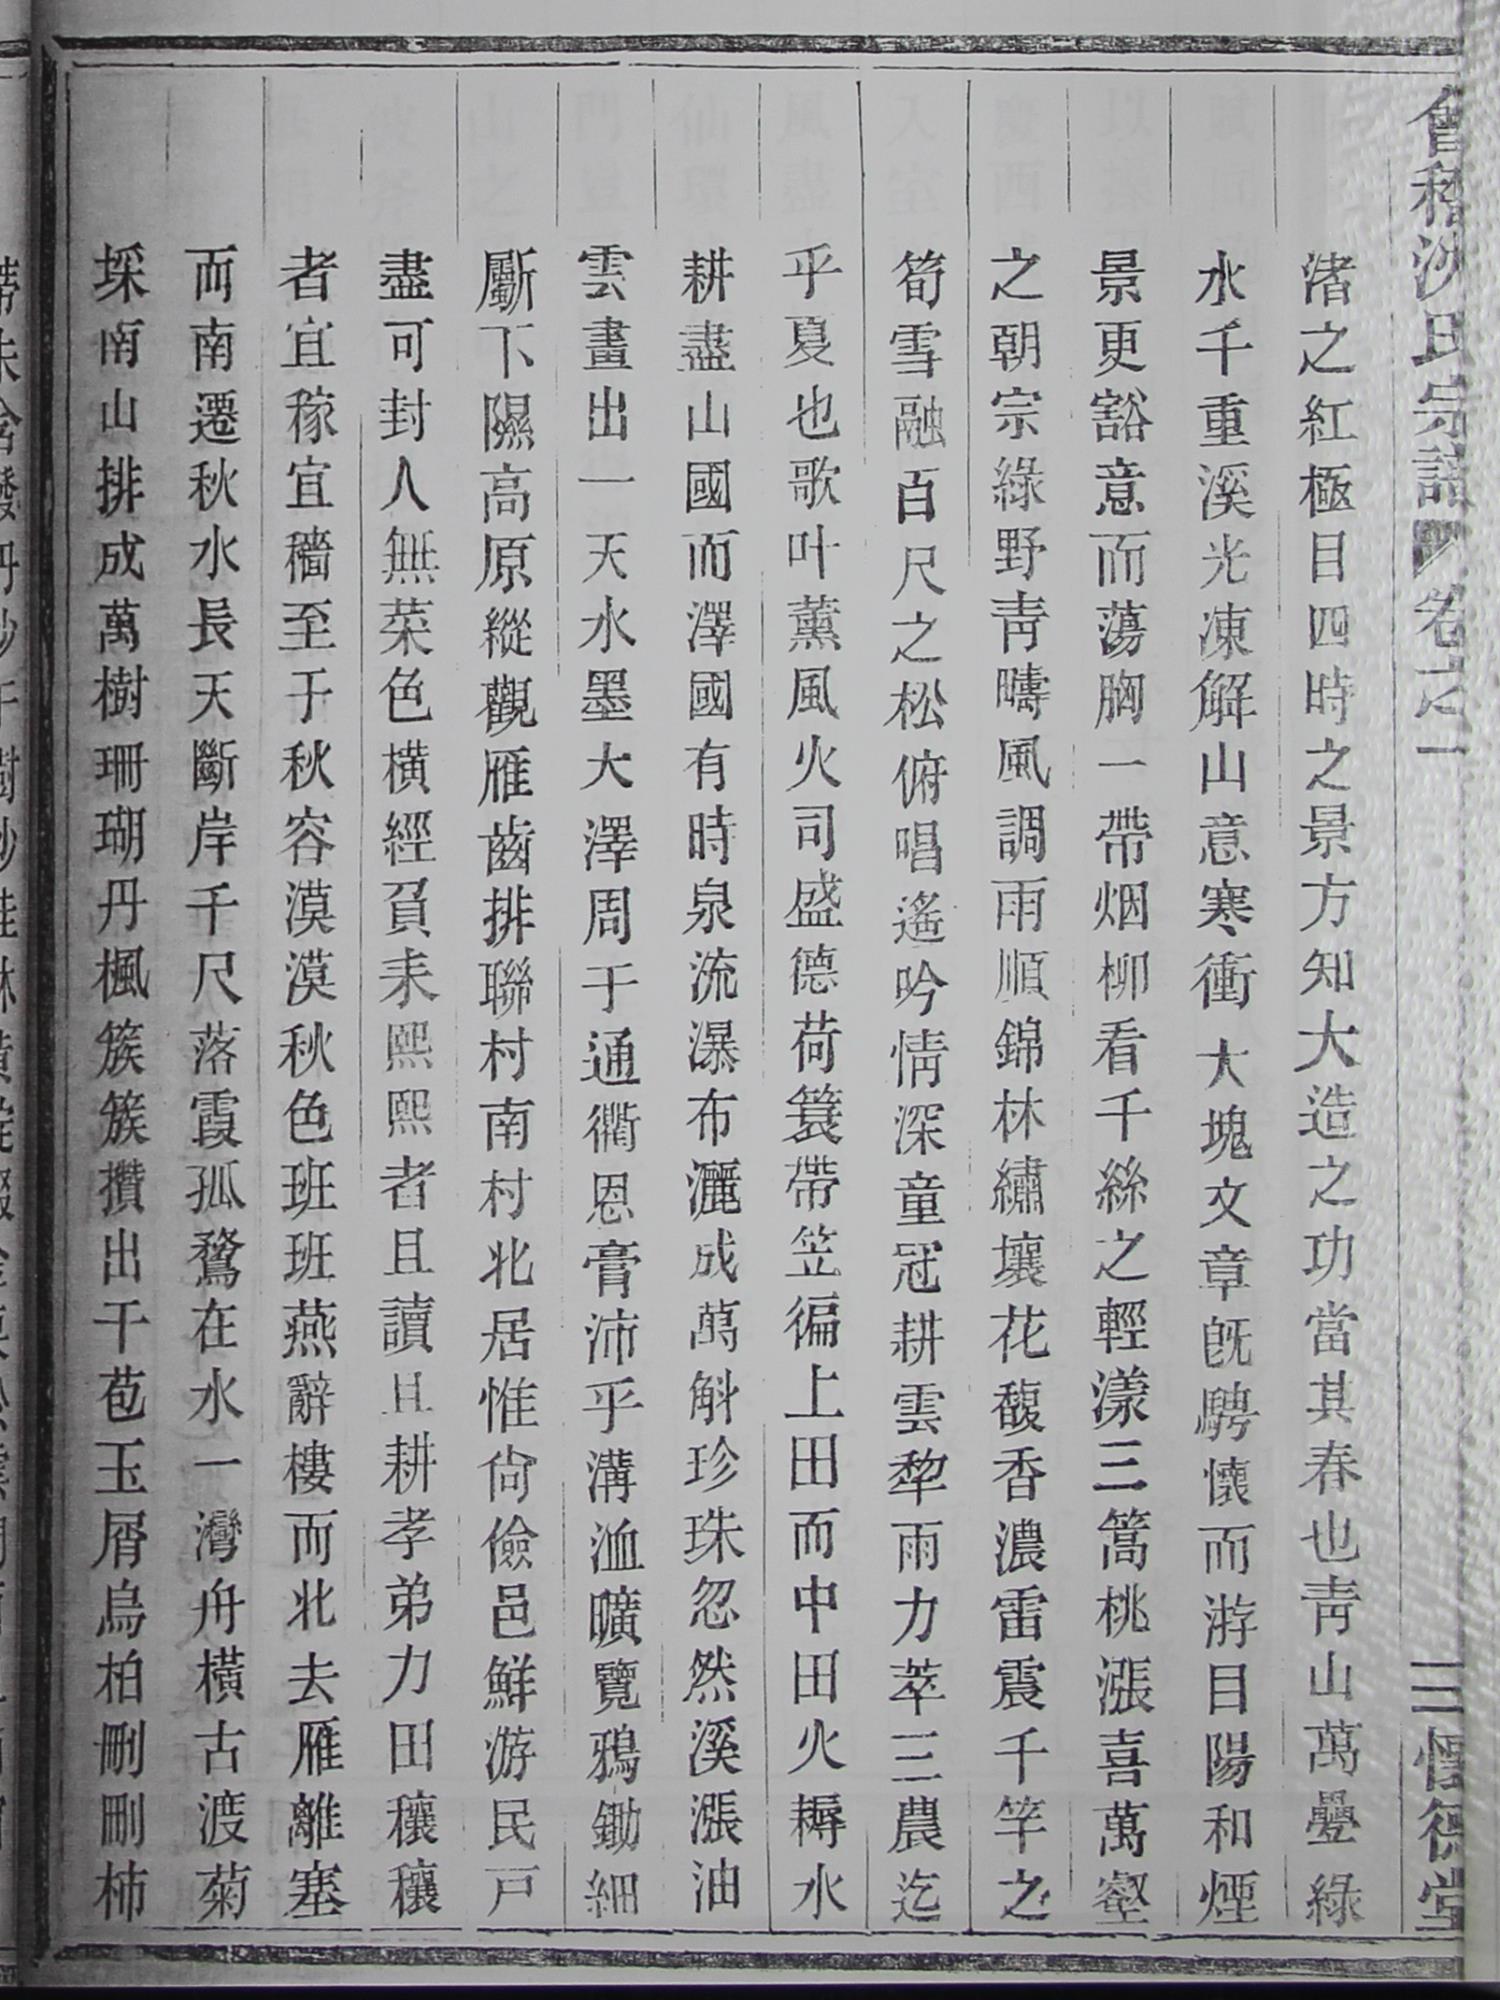 會稽沈氏宗譜 卷之一 三 懷德堂
渚之紅極目四時之景方知大造之功當其春也靑山萬疊綠
水千重溪光凍解山意寒衝大塊文章旣騁懷而游目陽和煙
景更豁意而蕩胸一帶烟柳看千絲之輕漾三篙桃漲喜萬壑
之朝宗綠野靑疇風調雨順錦林繡壤花馥香濃雷震千竿之
筍雪融百尺之松俯唱遙吟情深童冠耕雲犂雨力萃三農迄
乎夏也歌叶薰風火司盛德荷簑帶笠徧上田而中田火耨水
耕盡山國而澤國有時泉流瀑布灑成萬斛珍珠忽然溪漲油
雲畫出一天水墨大澤周于通衢恩膏沛乎溝洫曠覽鴉鋤細
斸下隰高原縱觀雁齒排聯村南村北居惟尙儉邑鮮游民戸
盡可封人無菜色橫經負耒熙熙者且讀且耕孝弟力田穰穰
者宜稼宜穡至于秋容漠漠秋色班班燕辭樓而北去雁離塞
而南遷秋水長天斷岸千尺落霞孤鶩在水一灣舟橫古渡菊
採南山排成萬樹珊瑚丹楓簇簇攢出千苞玉屑烏桕刪刪柿